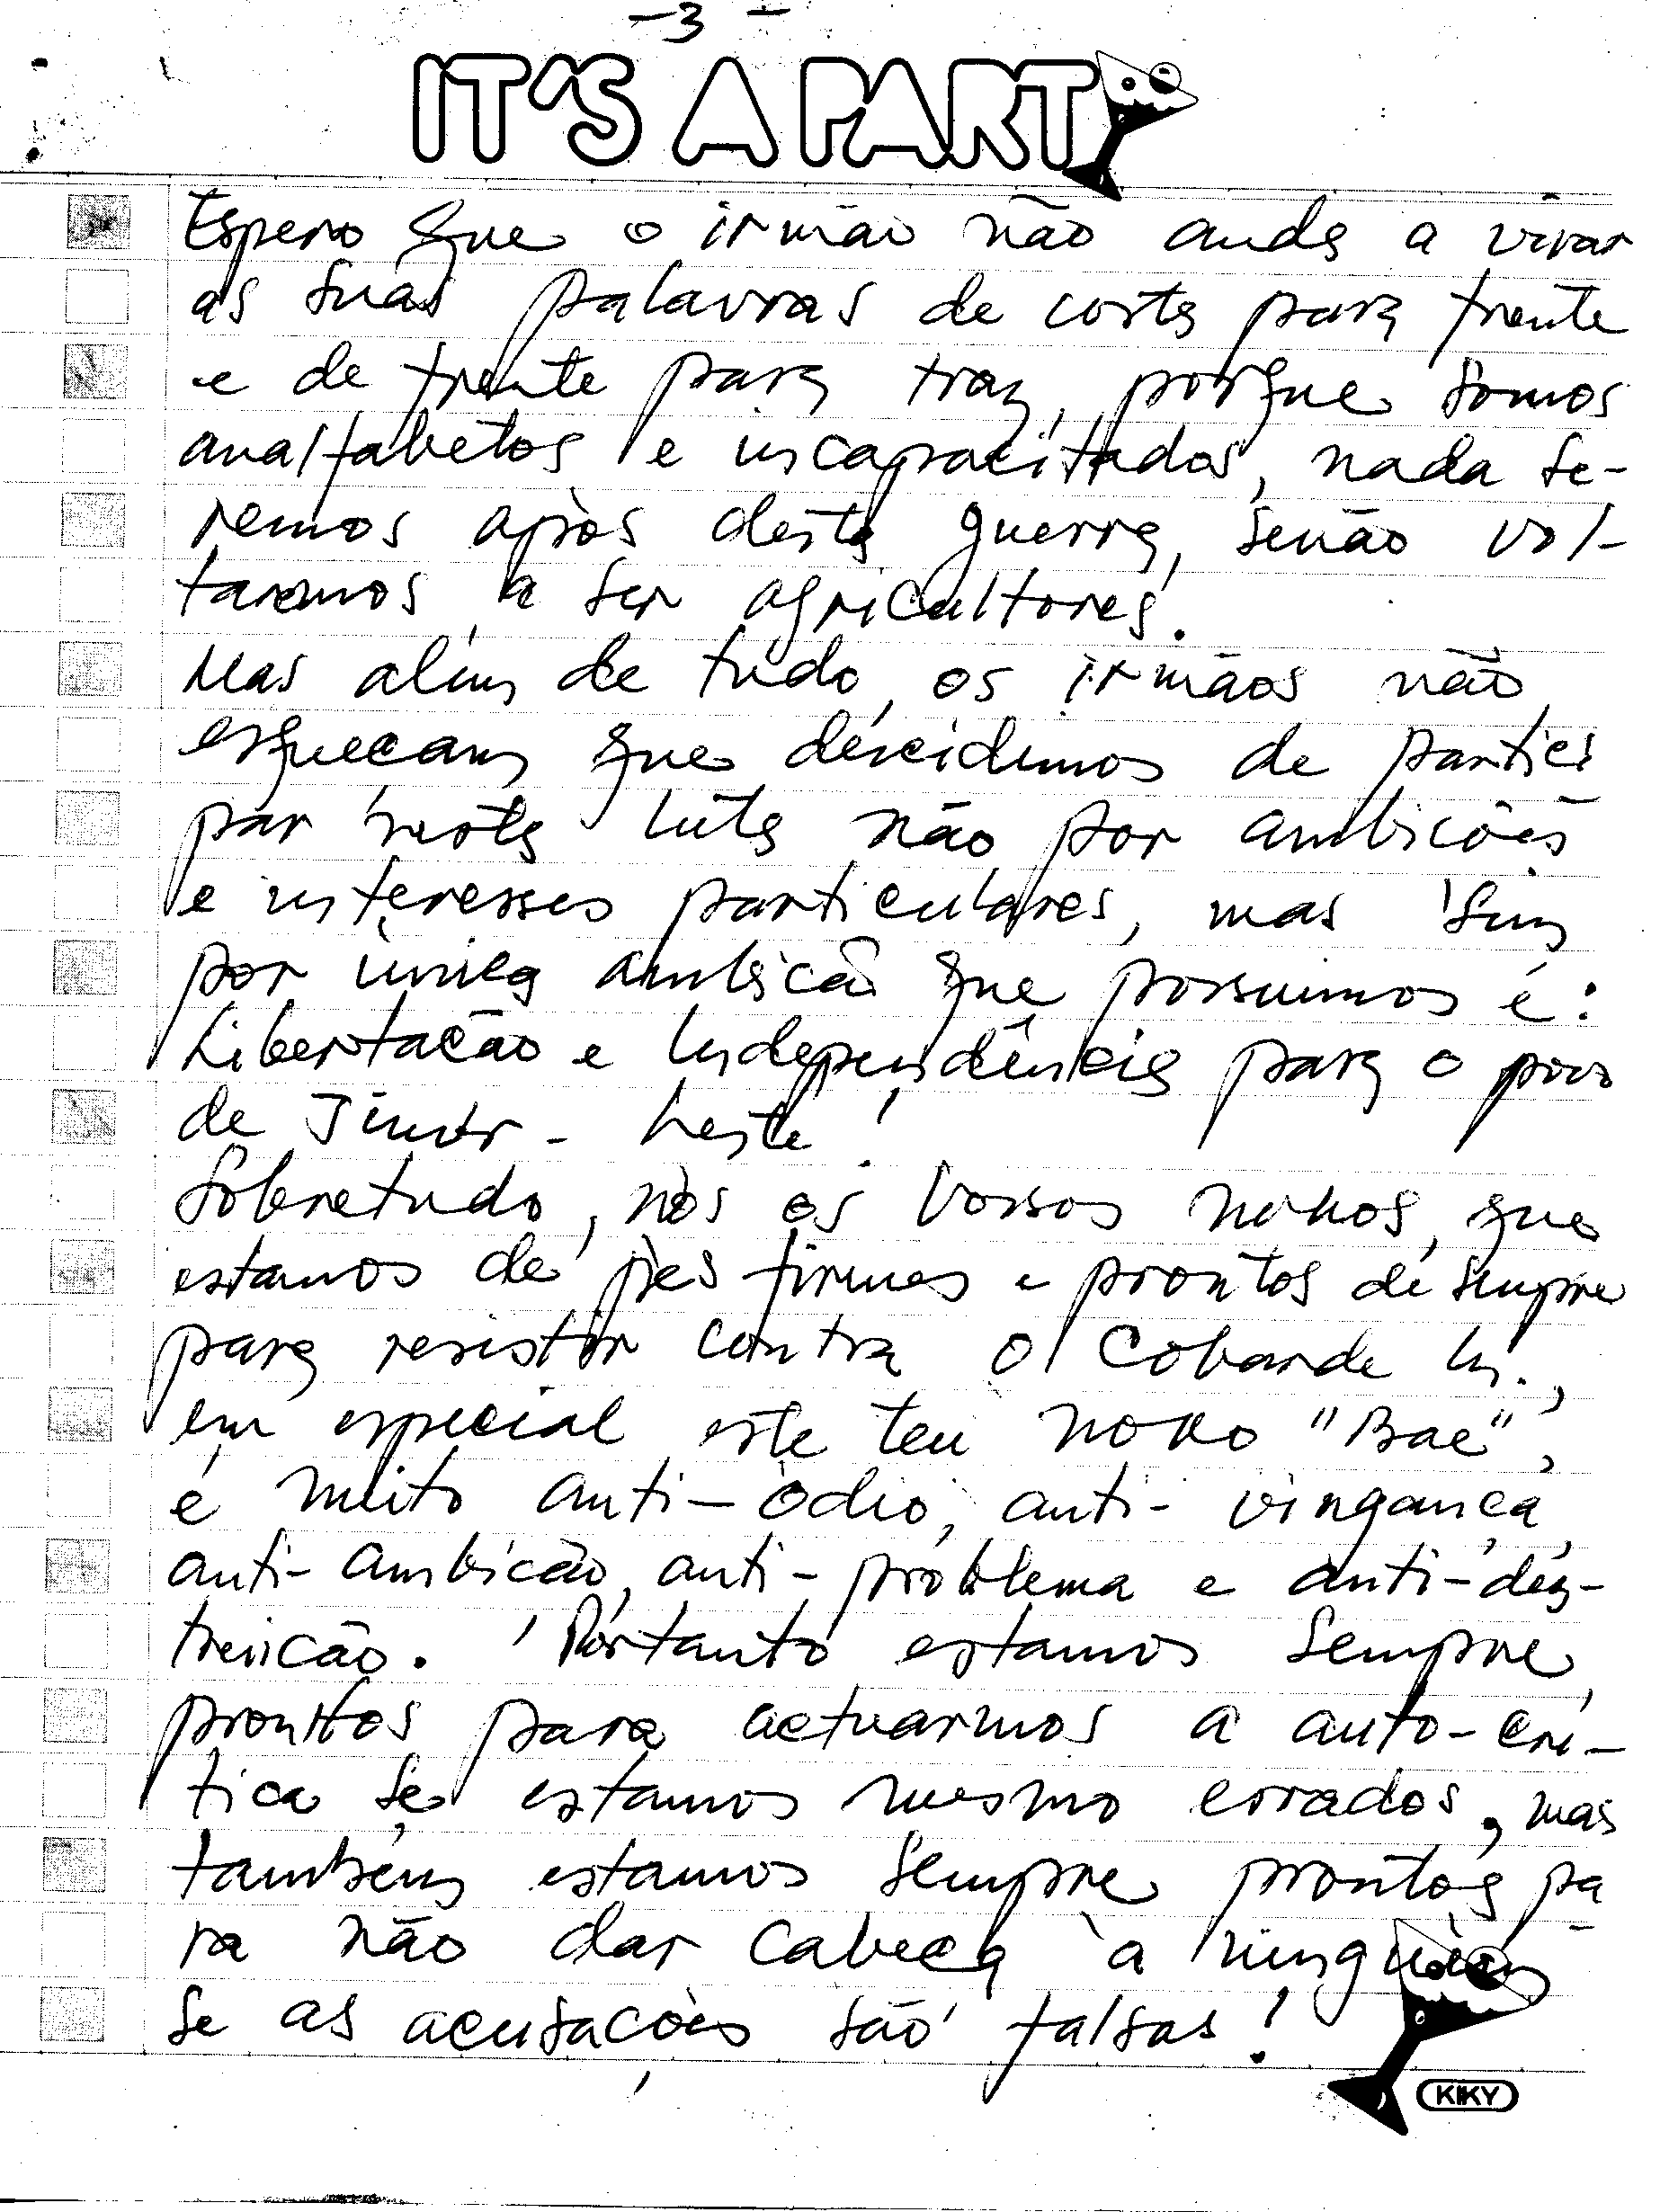 -3-
IT'S A PARTY
Espero que o irmão não ande a virar
as suas palavras de costa para frente
e de frente para traz, porque somos
analfabetos e incapacitados, nada se-
remos após desta guerra, senão vol-
taremos a ser agricultores.
Mas além de tudo, os irmãos não
esqueçam que decidimos de partici
par nesta luta não por ambições
e interesses particulares, mas sim
por única ambição que possuimos é:
Libertação e Independência para o povo
de Timor-Leste!
Sobretudo, nós os vossos nokos, que
estamos de pés firmes e prontos de sempre
para resistir contra o cobarde In.,
em especial este teu noko "Bae",
é muito anti-ódio, anti-vingança,
anti-ambição, anti-problema e anti-des-
truição. Portanto estamos sempre
prontos para actuarmos a auto-crí-
tica se estamos mesmo errados, mas
também estamos sempre prontos pa
ra não dar cabeça à ninguém
se as acusações são falsas!
KIKY